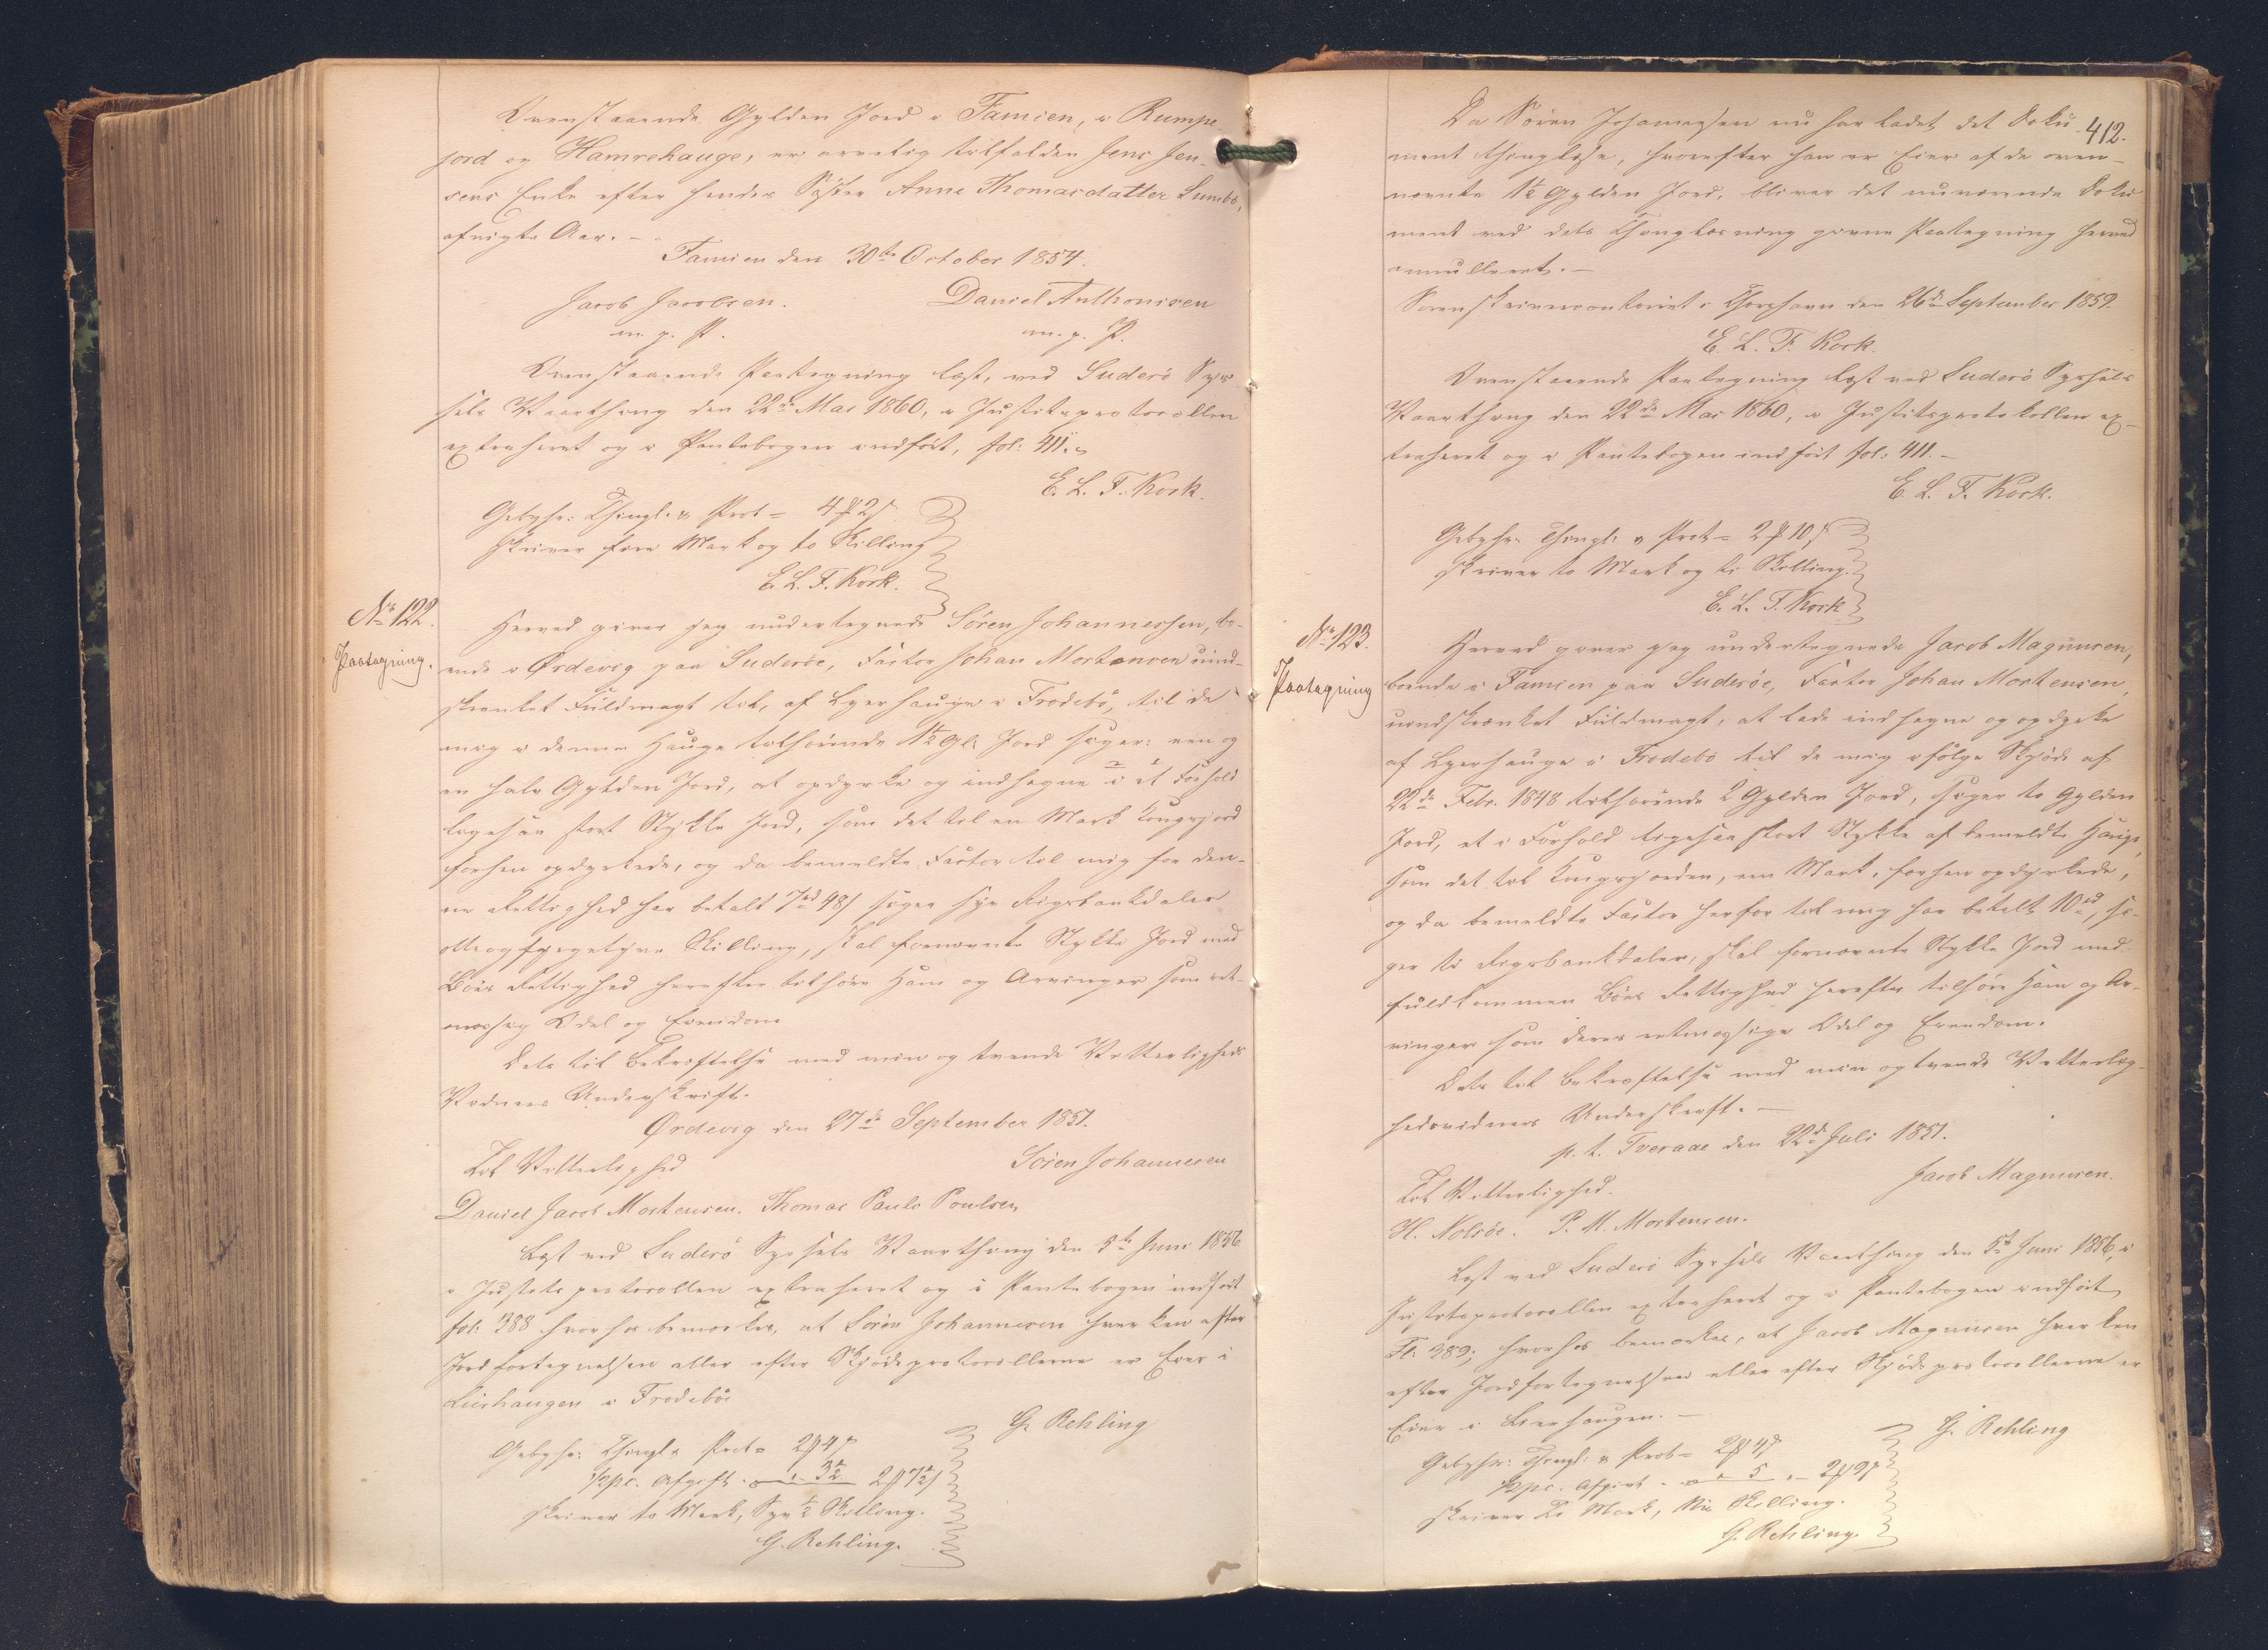 Ovenstaaende Gylden Jord i Famien, i Rumpe-
jord og Hamrehauge, er arvelig tilfalden Jens Jen-
sens Enke efter hendes Søster Anne Thomasdatter Sumbø,
afvigte Aar. –
Famien den 30te October 1854.
Jacob Jacobsen. Daniel Anthonisen
m. p. P. m. p. P.
Ovenstaaende Paategning læst, ved Suderö Sys-
sels Vaarthing den 22de Mai 1860, i Justitsprotocollen
extraheret og i Pantebogen indført, fol: 411.
E. L. T. Kock.
Gebyhr: Thingl. & Prot = 4 ₰ 2 s
skriver fire Mark og to Skilling
E. L. T. Kock.
No 122.
Paategning.
Herved giver jeg undertegnede Sören Johannessen, bo-
ende i Ørdevig paa Suderöe, Factor Johan Mortensen uind-
skrænket Fuldmagt til, af Lyerhauge i Frodebö, til de
mig i denne Hauge tilhørende 1½ Gl: Jord siger: een og
en halv Gylden Jord, at opdyrke og indhegne i et Forhold
ligesaa stort Stykke Jord, som det til en Mark Kongsjord
forhen opdyrkede, og da bemeldte Factor til mig for den-
ne Rettighed har betalt 7 rd 48 s siger syv Rigsbankdaler
otteogfyrgetyve Skilling, skal fornævnte Stykke Jord med
Böes Rettighed herefter tilhøre Ham og Arvinger som ret-
mæssig Odel og Eiendom
Dets til Bekræftelse med min og tvende Vitterligheds
Vidners Underskrift.
Ørdevig den 27de September 1851.
Til Vitterlighed Sören Johannesen
Daniel Jacob Mortensen. Thomas Pauli Poulsen
Læst ved Suderö Syssels Vaarthing den 5te Juni 1856
i Justitsprotocollen extraheret og i Pantebogen indført
fol: 388 hvorhos bemærkes, at Sören Johannesen hverken efter
Jordfortegnelsen eller efter Skjødeprotocollerne er Eier i
Lierhaugen i Frodeböe
G. Rehling
Gebyhr: Thingl & Prot = 2 ₰ 4 s
½ pc. Afgift 3½ 2 ₰ 7½ s
skriver to Mark, Syv ½ Skilling.
G. Rehling.
412.
Da Sören Johannesen nu har ladet det Doku-
ment thinglyse, hvorefter han er Eier af de oven-
nævnte 1½ Gylden Jord, bliver det nuværende Doku-
ment ved dets Thinglæsning givne Paategning herved
annulleret. –
Sorenskrivercontoiret i Thorshavn den 26de September 1859.
E. L. T. Kock.
Ovenstaaende Paategning læst ved Suderö Syssels
Vaarthing den 22de Mai 1860, i Justitsprotokollen ex-
traheret og i Pantebogen indført fol: 411. –
E. L. T. Kock.
Gebyhr: Thingl: & Prot = 2 ₰ 10 s
skriver to Mark og ti Skilling.
E. L. T. Kock
No 123.
Paategning
Herved giver jeg undertegnede Jacob Magnusen,
boende i Famien paa Suderöe, Factor Johan Mortensen,
uindskrænket Fuldmagt, at lade indhegne og opdyrke
af Lyerhauge i Frodebö til de mig ifølge Skjøde af
22de Febr. 1848 tilhørende 2 Gylden Jord, siger to Gylden
Jord, et i Forhold ligesaa stort Stykke af bemeldte Hauge,
som det til Kongsjorden, een Mark, forhen opdyrkede,
og da bemeldte Factor herfor til mig har betalt 10 rd, si-
ger ti Rigsbankdaler, skal fornævnte Stykke Jord med
fuldkommen Böes Rettighed herefter tilhøre Ham og Ar-
vinger som deres retmæssige Odel og Eiendom.
Dets til Bekræftelse med min og tvende Vitterlig-
hedsvidners Underskrift. –
p. t. Tveraae den 22de Juli 1851.
Til Vitterlighed. Jacob Magnusen.
H. Nolsöe. P. M. Mortensen.
Læst ved Suderö Syssels Vaarthing den 5te Juni 1856, i
Justitsprotocollen extraheret og i Pantebogen indført
Fl: 389; hvorhos bemærkes, at Jacob Magnusen hverken
efter Jordfortegnelsen eller efter Skjødeprotocollerne er
Eier i Lierhaugen. –
G. Rehling
Gebyhr: Thingl: & Prot = 2 ₰ 4 s
½ pc. Afgift 5 – 2 ₰ 9 s
skriver To Mark, Nie Skilling.
G. Rehling.